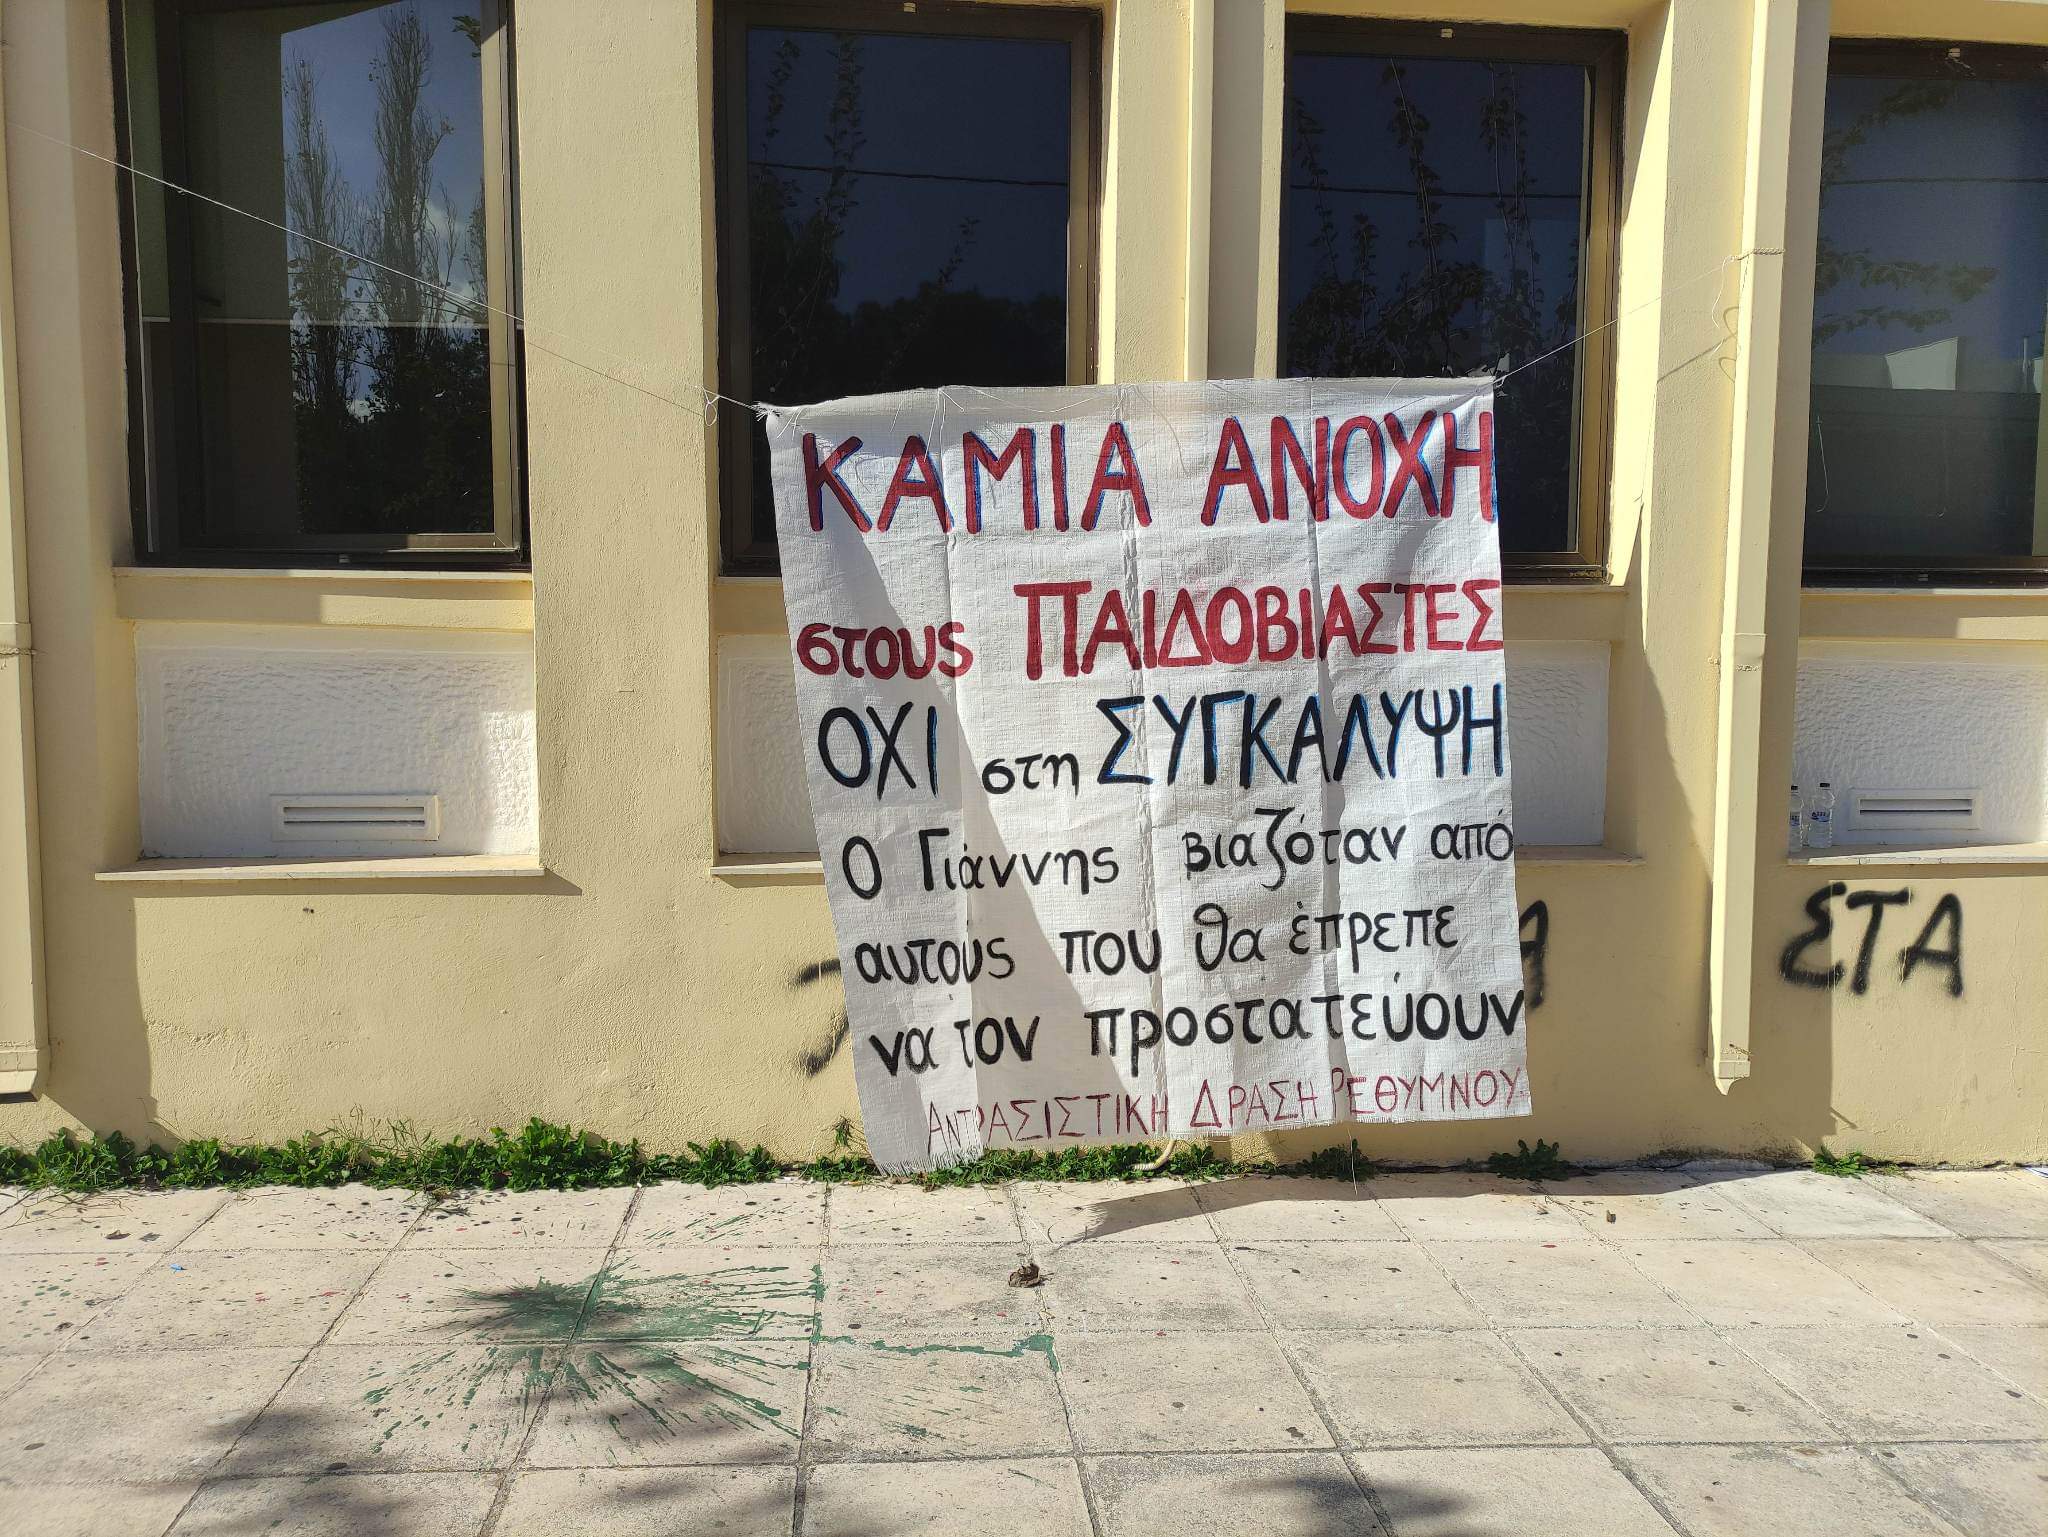 ΚΑΜΙΑ ΑΝΟΧΗ
στους ΠΑΙΔΟΒΙΑΣΤΕΣ
ΟΧΙ στη ΣΥΓΚΑΛΥΨΗ
Ο Γιάννης βιαζόταν από
αυτούς που θα έπρεπε
να τον προστατεύουν
ΑΝΤΡΑΣΙΣΤΙΚΗ ΔΡΑΣΗ ΡΕΘΥΜΝΟΥ
ΣΤΑ